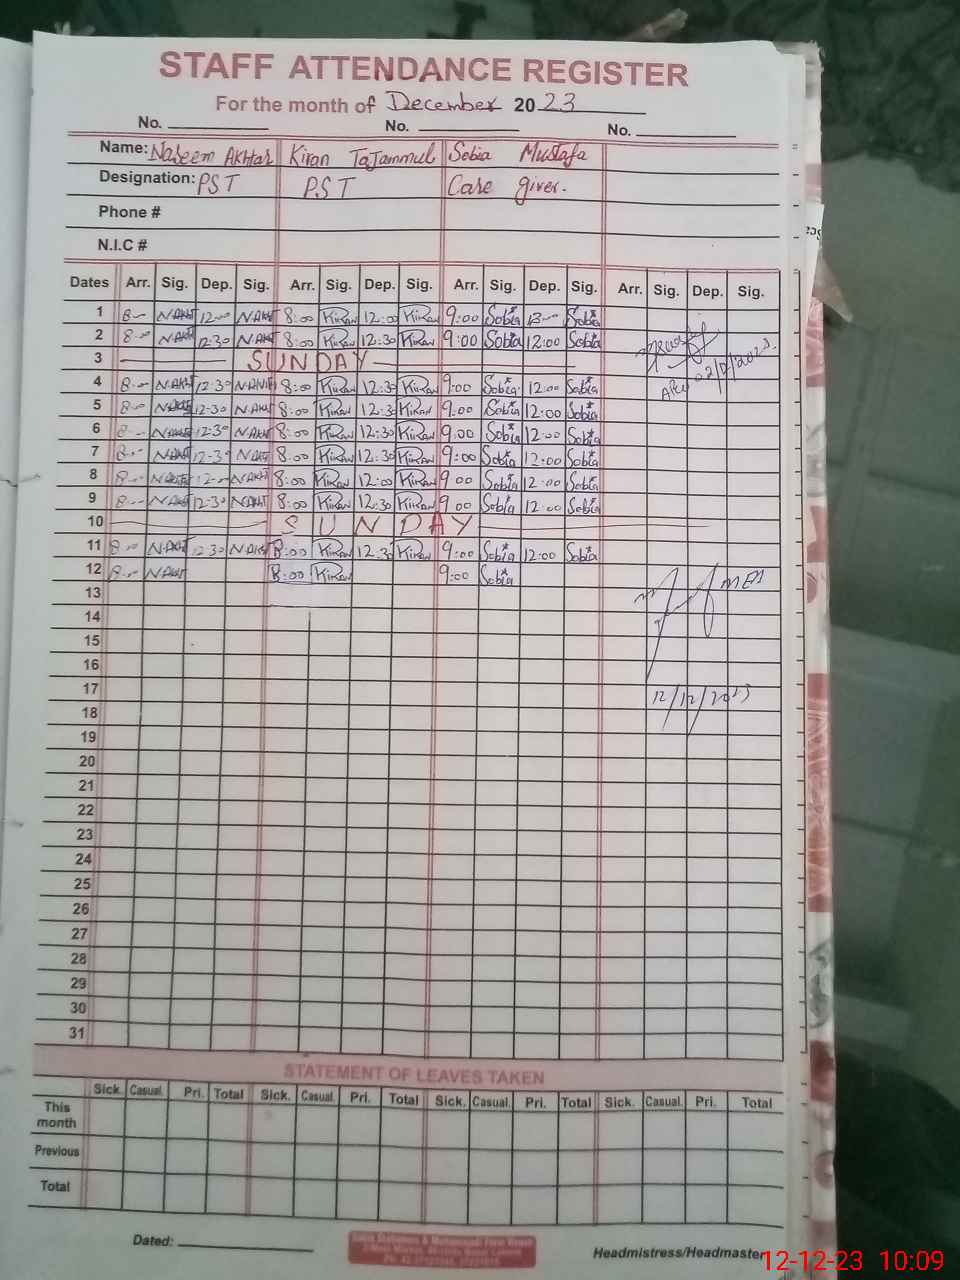 STAFF ATTENDANCE REGISTER
For the month of December 20 23
No. No. No.
Name: Naseem Akhtar Kiran Tajammul Sobia Mustafa
Designation: PST PST Care giver.
Phone #
N.I.C #
Dates Arr. Sig. Dep. Sig. Arr. Sig. Dep. Sig. Arr. Sig. Dep. Sig. Arr. Sig. Dep. Sig.
1 8-- N.AKHT 12-00 N.AKHT 8:00 Kiran 12:00 Kiran 9:00 Sobia Sobia
2 8-- N.AKHT 12-30 N.AKHT 8:00 Kiran 12:30 Kiran 9:00 Sobia 12:00 Sobia
3 SUNDAY
4 8-- N.AKHT 12-30 8:00 Kiran 12:30 Kiran 9:00 Sobia 12:00 Sobia
5 8-- N.AKHT 12-30 N.AKHT 8:00 Kiran 12:30 Kiran 9:00 Sobia 12:00 Sobia
6 8-- N.AKHT 12-30 N.AKHT 8:00 Kiran 12:30 Kiran 9:00 Sobia 12:00 Sobia
7 8-- N.AKHT 12-30 N.AKHT 8:00 Kiran 12:30 Kiran 9:00 Sobia 12:00 Sobia
8 8-- N.AKHT 12-- N.AKHT 8:00 Kiran 12:00 Kiran 9 00 Sobia 12:00 Sobia
9 8-- N.AKHT 12-30 N.AKHT 8:00 Kiran 12:30 Kiran 9 00 Sobia 12:00 Sobia
10 SUNDAY
11 8-- N.AKHT 12-30 N.AKHT 8:00 Kiran 12:30 Kiran 9:00 Sobia 12:00 Sobia
12 8-- N.AKHT 8:00 Kiran 9:00 Sobia
13
14
15
16
17 12/12/2023
18
19
20
21
22
23
24
25
26
27
28
29
30
31
STATEMENT OF LEAVES TAKEN
Sick. Casual. Pri. Total Sick. Casual. Pri. Total Sick. Casual. Pri. Total Sick. Casual. Pri. Total
This month
Previous
Total
Dated:
Headmistress/Headmaster
12-12-23 10:09